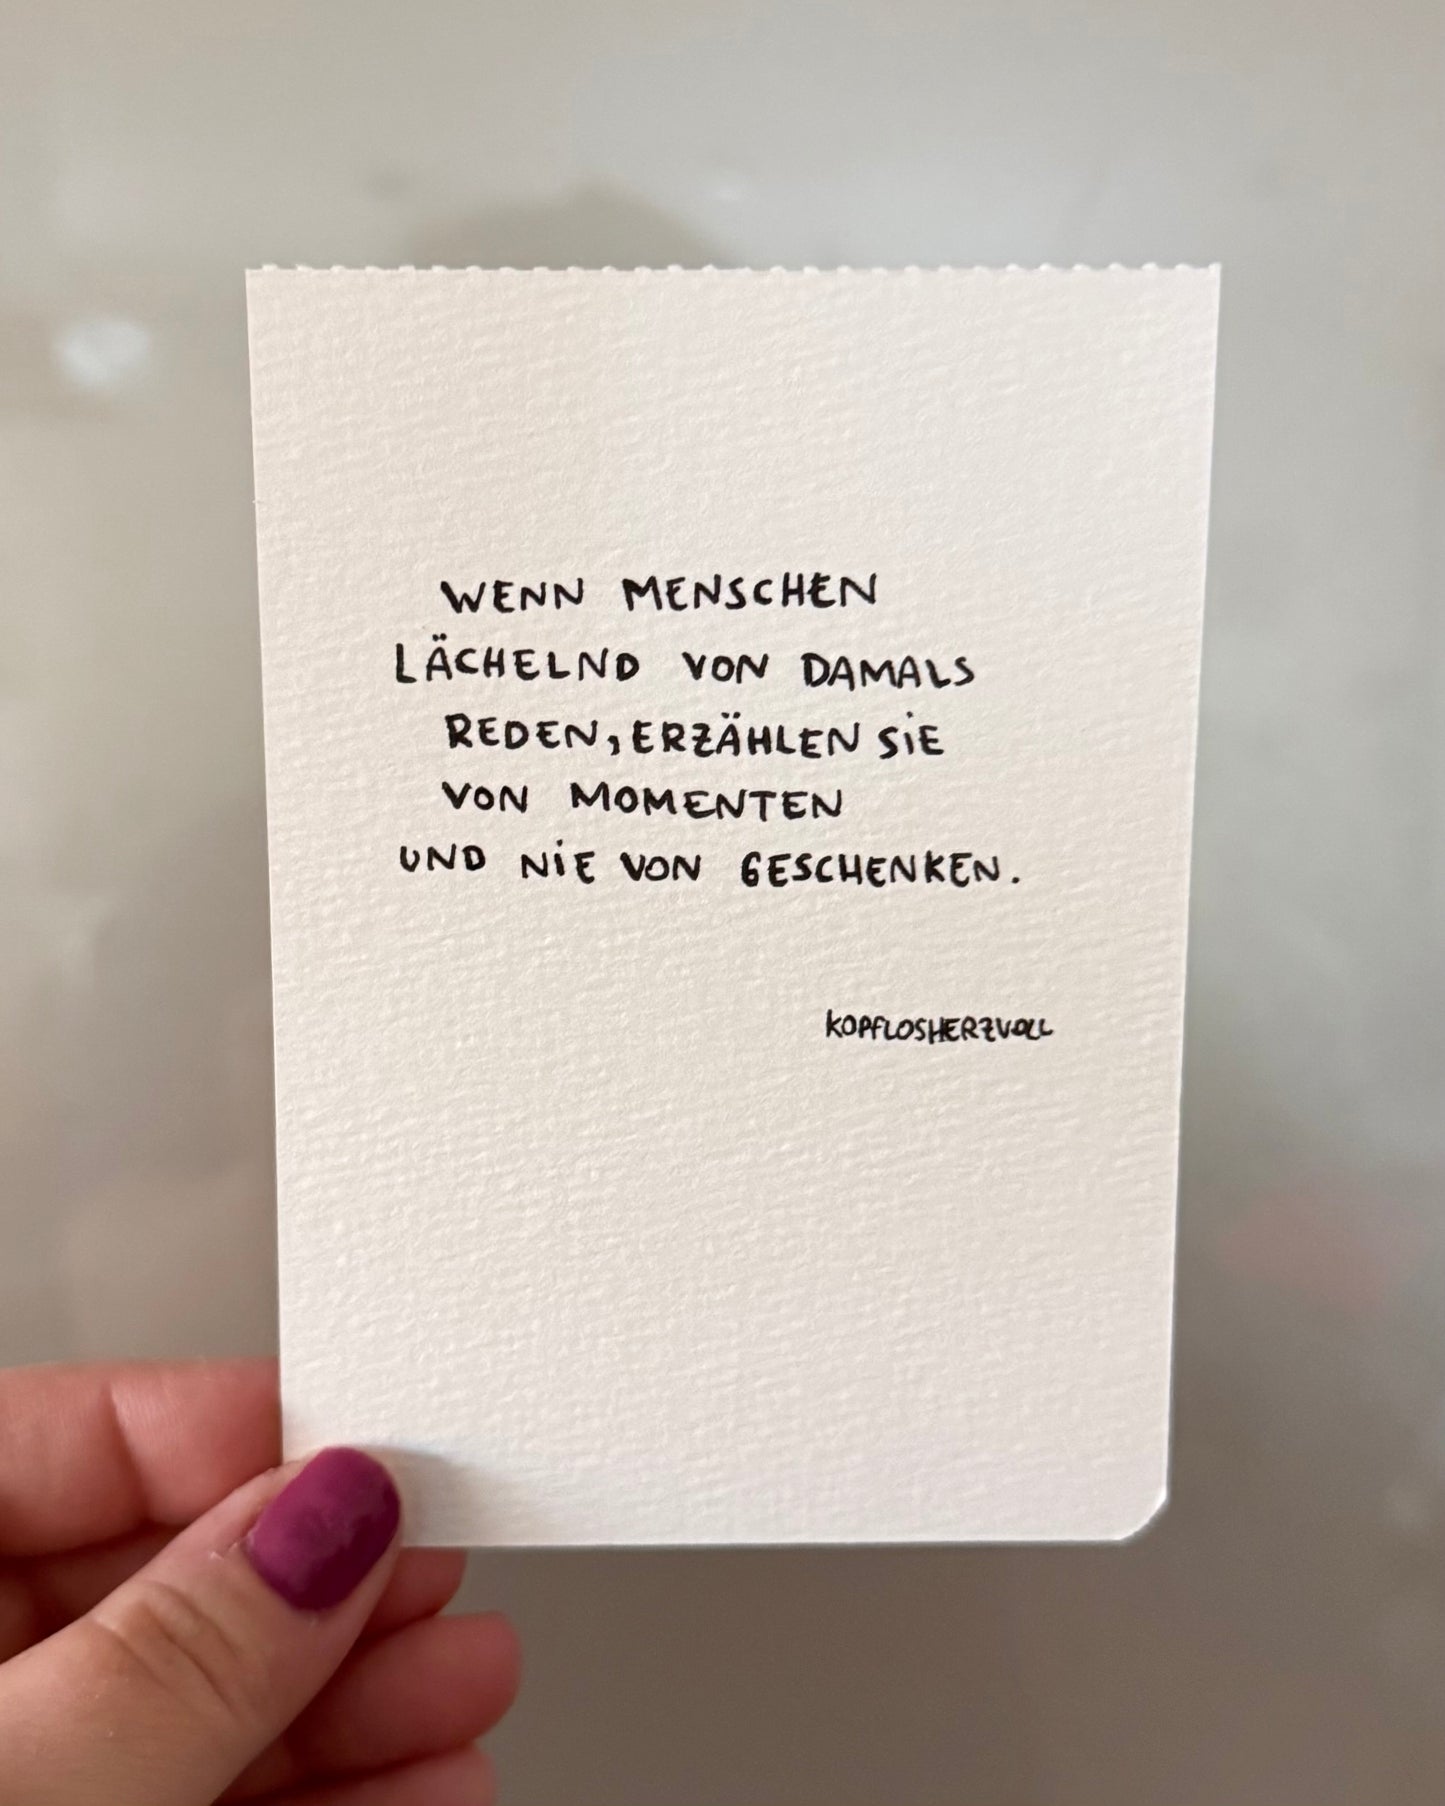 WENN MENSCHEN
LÄCHELND VON DAMALS
REDEN, ERZÄHLEN SiE
VON MOMENTEN
UND NiE VON GESCHENKEN.
KOPFLOSHERZVOLL